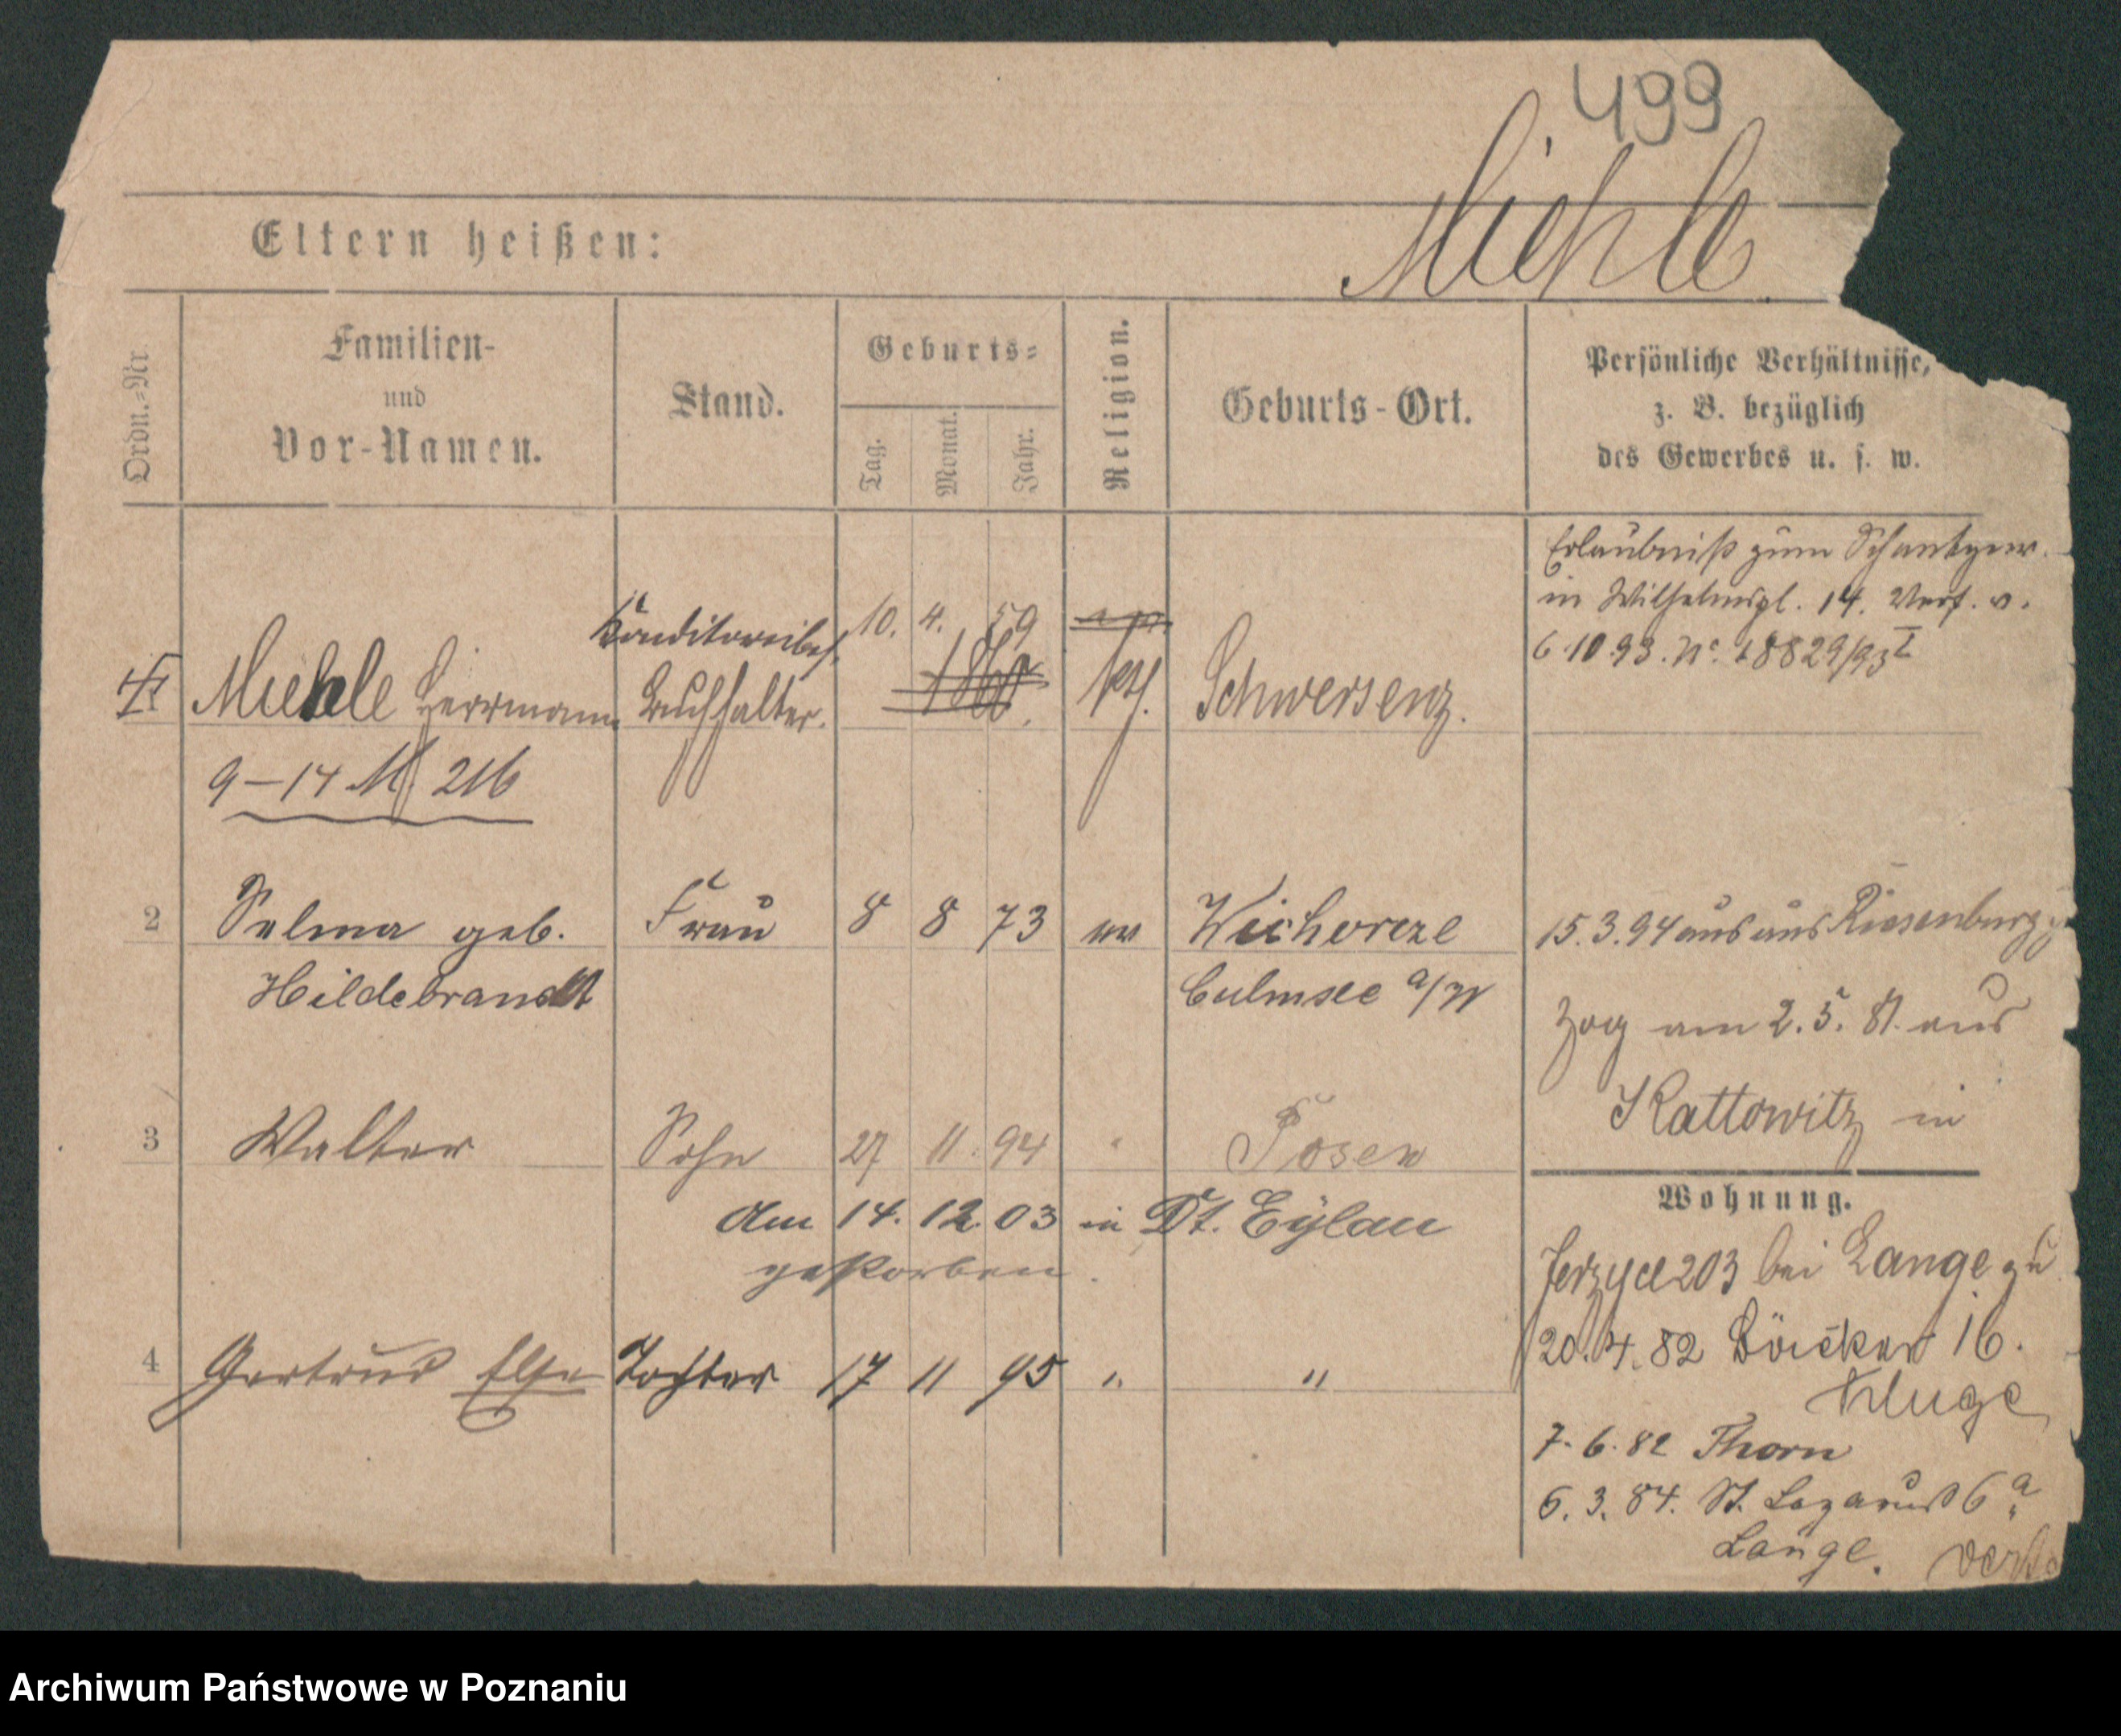 499
Miehle
Eltern heißen:
Ordn.-Nr.
Familien-
und
Vor-Namen.
Stand.
Geburts-
Tag.
Monat.
Jahr.
Religion.
Geburts-Ort.
Persönliche Verhältnisse,
z. B. bezüglich
des Gewerbes u. s. w.
Erlaubniß zum Schankgew.
in Wilhelmspl. 14. Verf. v.
6.10.93. No. 18829/93 I
Konditoreibes. 10. 4. 59
Miehle Herrmann Buchhalter. kth. Schwersenz.
9-14 M 216
2 Selma geb. Frau 8 8 73 ev Wichorcze
Hildebrandt Culmsee a/W
15.3.94 aus Riesenburg
Zog am 2.5.81. aus
Kattowitz in
3 Walter Sohn 27 11. 94 " Posen
Am 14. 12. 03 in Dt. Eylau
gestorben.
4 Gertrud Else Tochter 17 11 95 " "
Wohnung.
Jerzyce 203 bei Lange zu
20.4.82 Bäcker 16.
Kluge
7. 6. 82 Thorn
6. 3. 84. St. Lazarus 6 a
Lange.
Archiwum Państwowe w Poznaniu